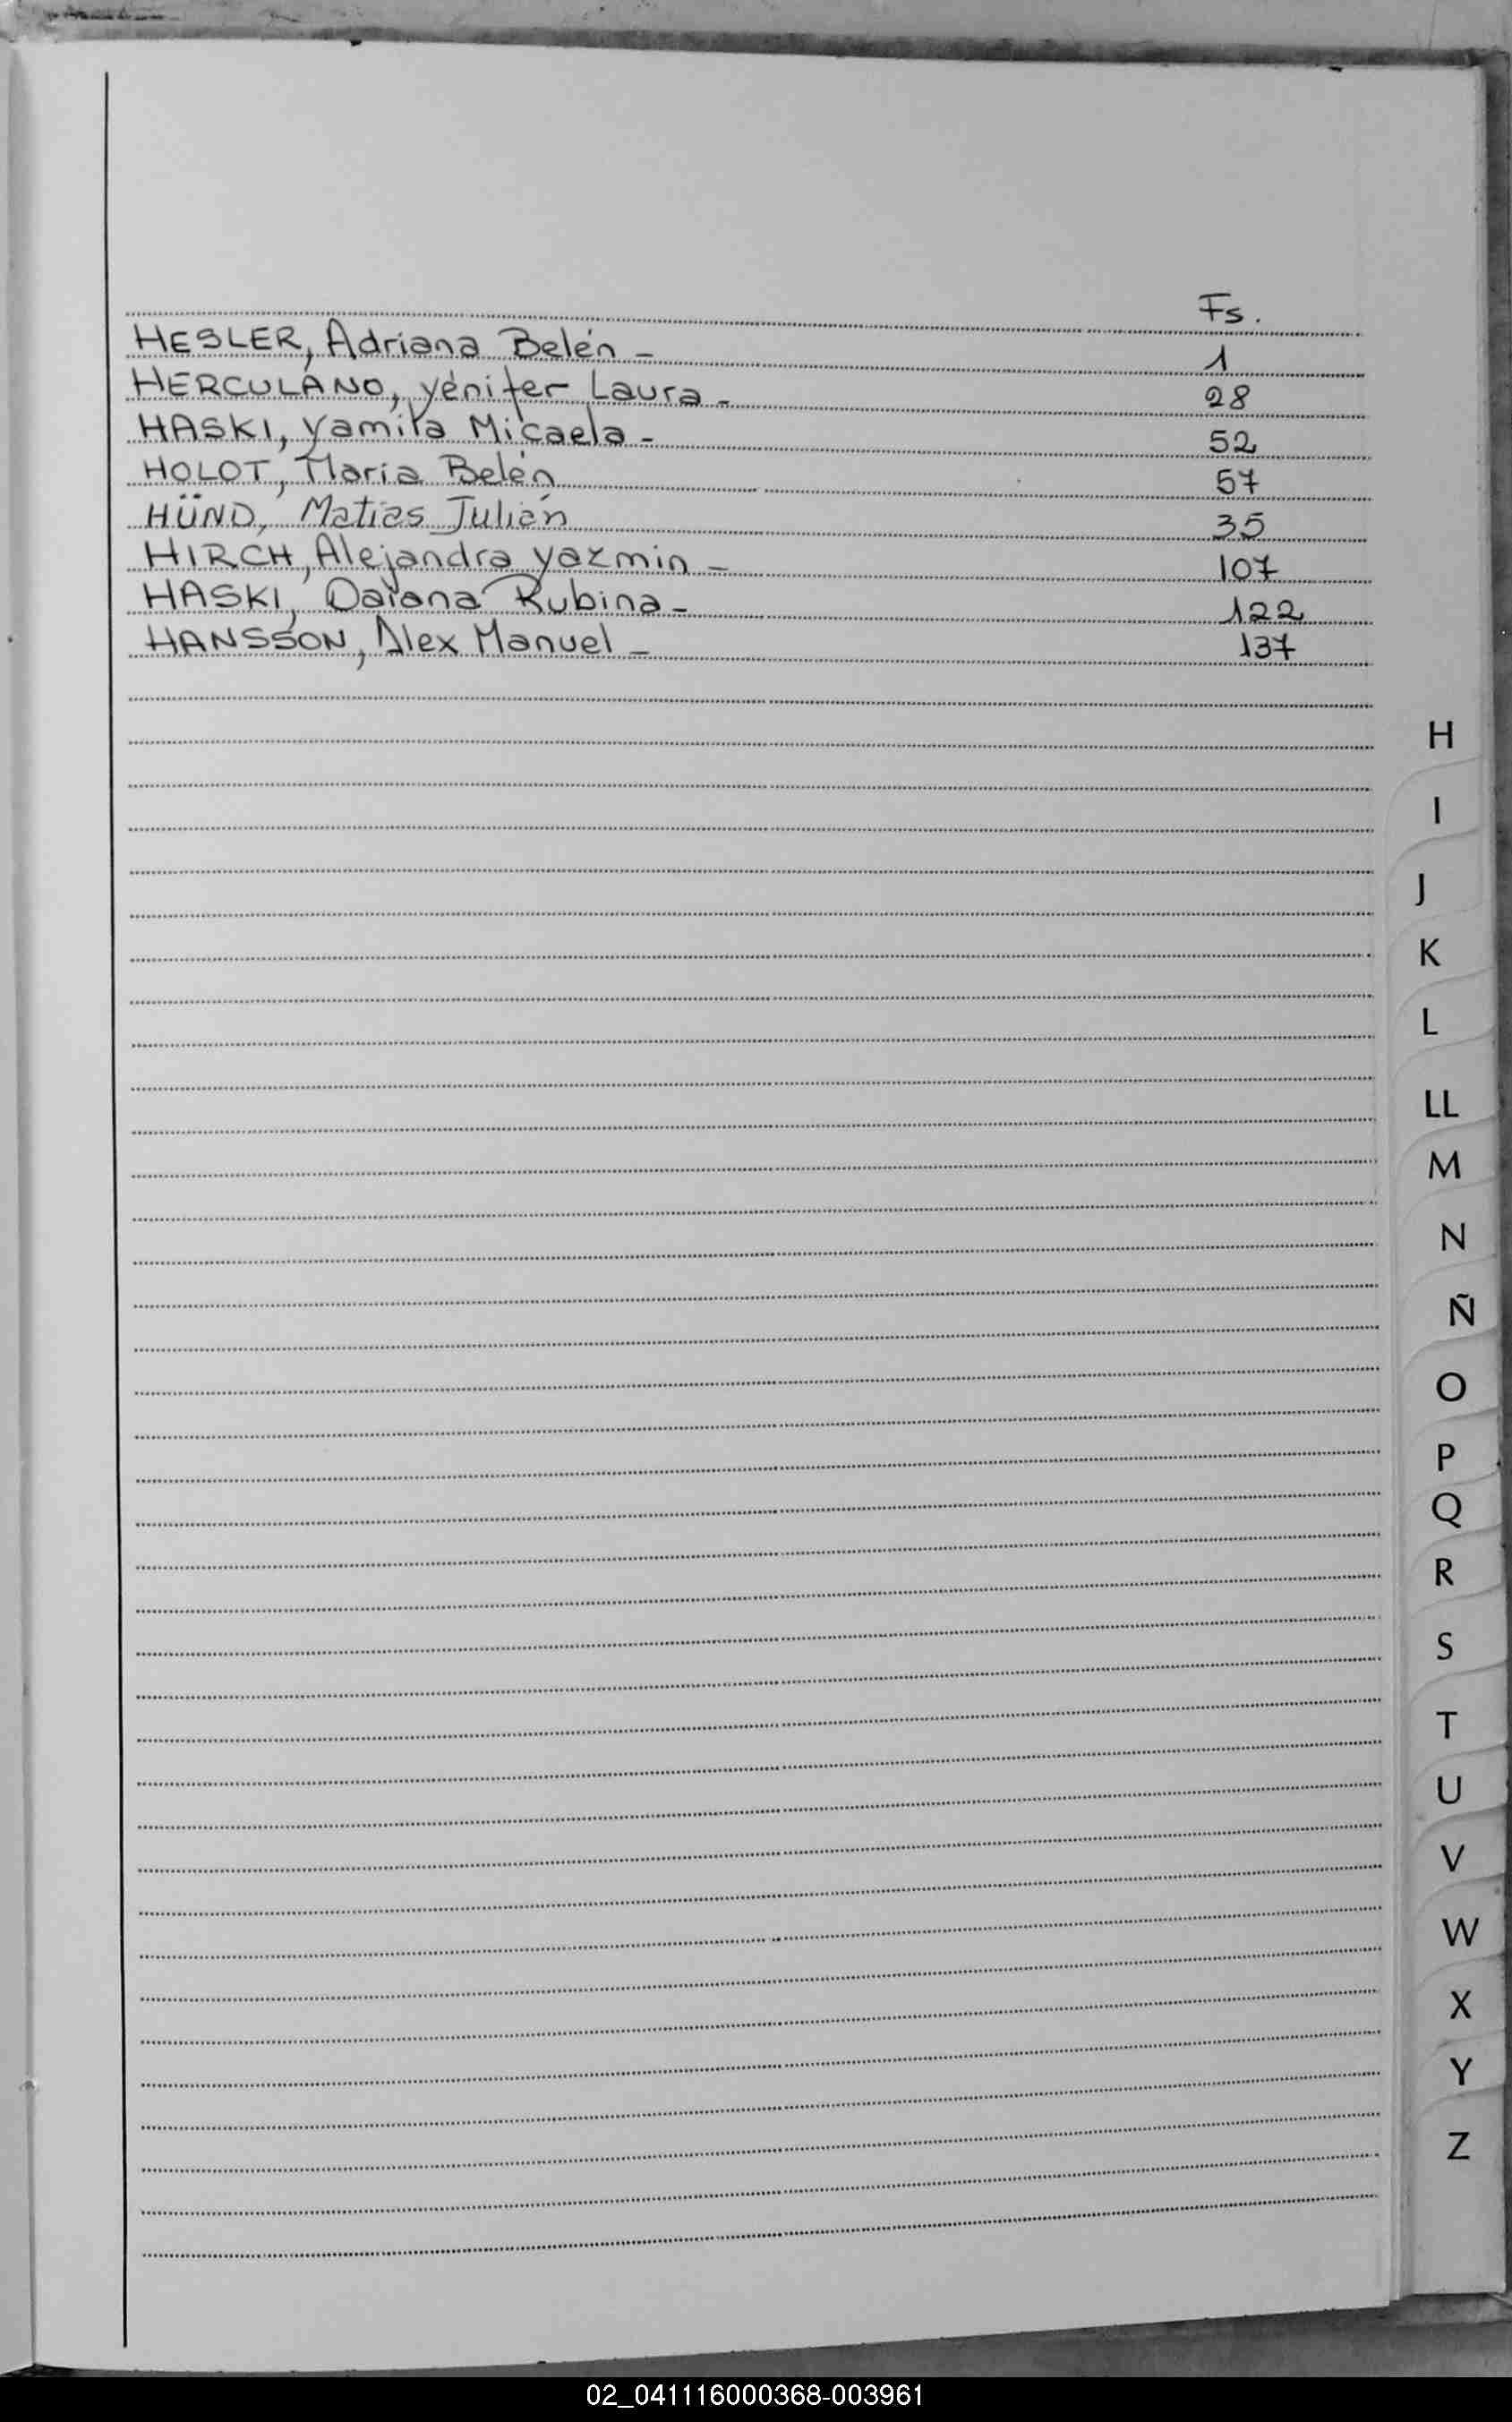 Fs.
HESLER, Adriana Belén - 1
HERCULANO, Yénifer Laura - 28
HASKI, Yamila Micaela - 52
HOLOT, María Belén 57
HÜND, Matías Julián 35
HIRCH, Alejandra Yazmin - 107
HASKI, Daiana Rubina - 122
HANSSON, Alex Manuel - 137
H
I
J
K
L
LL
M
N
Ñ
O
P
Q
R
S
T
U
V
W
X
Y
Z
02_041116000368-003961